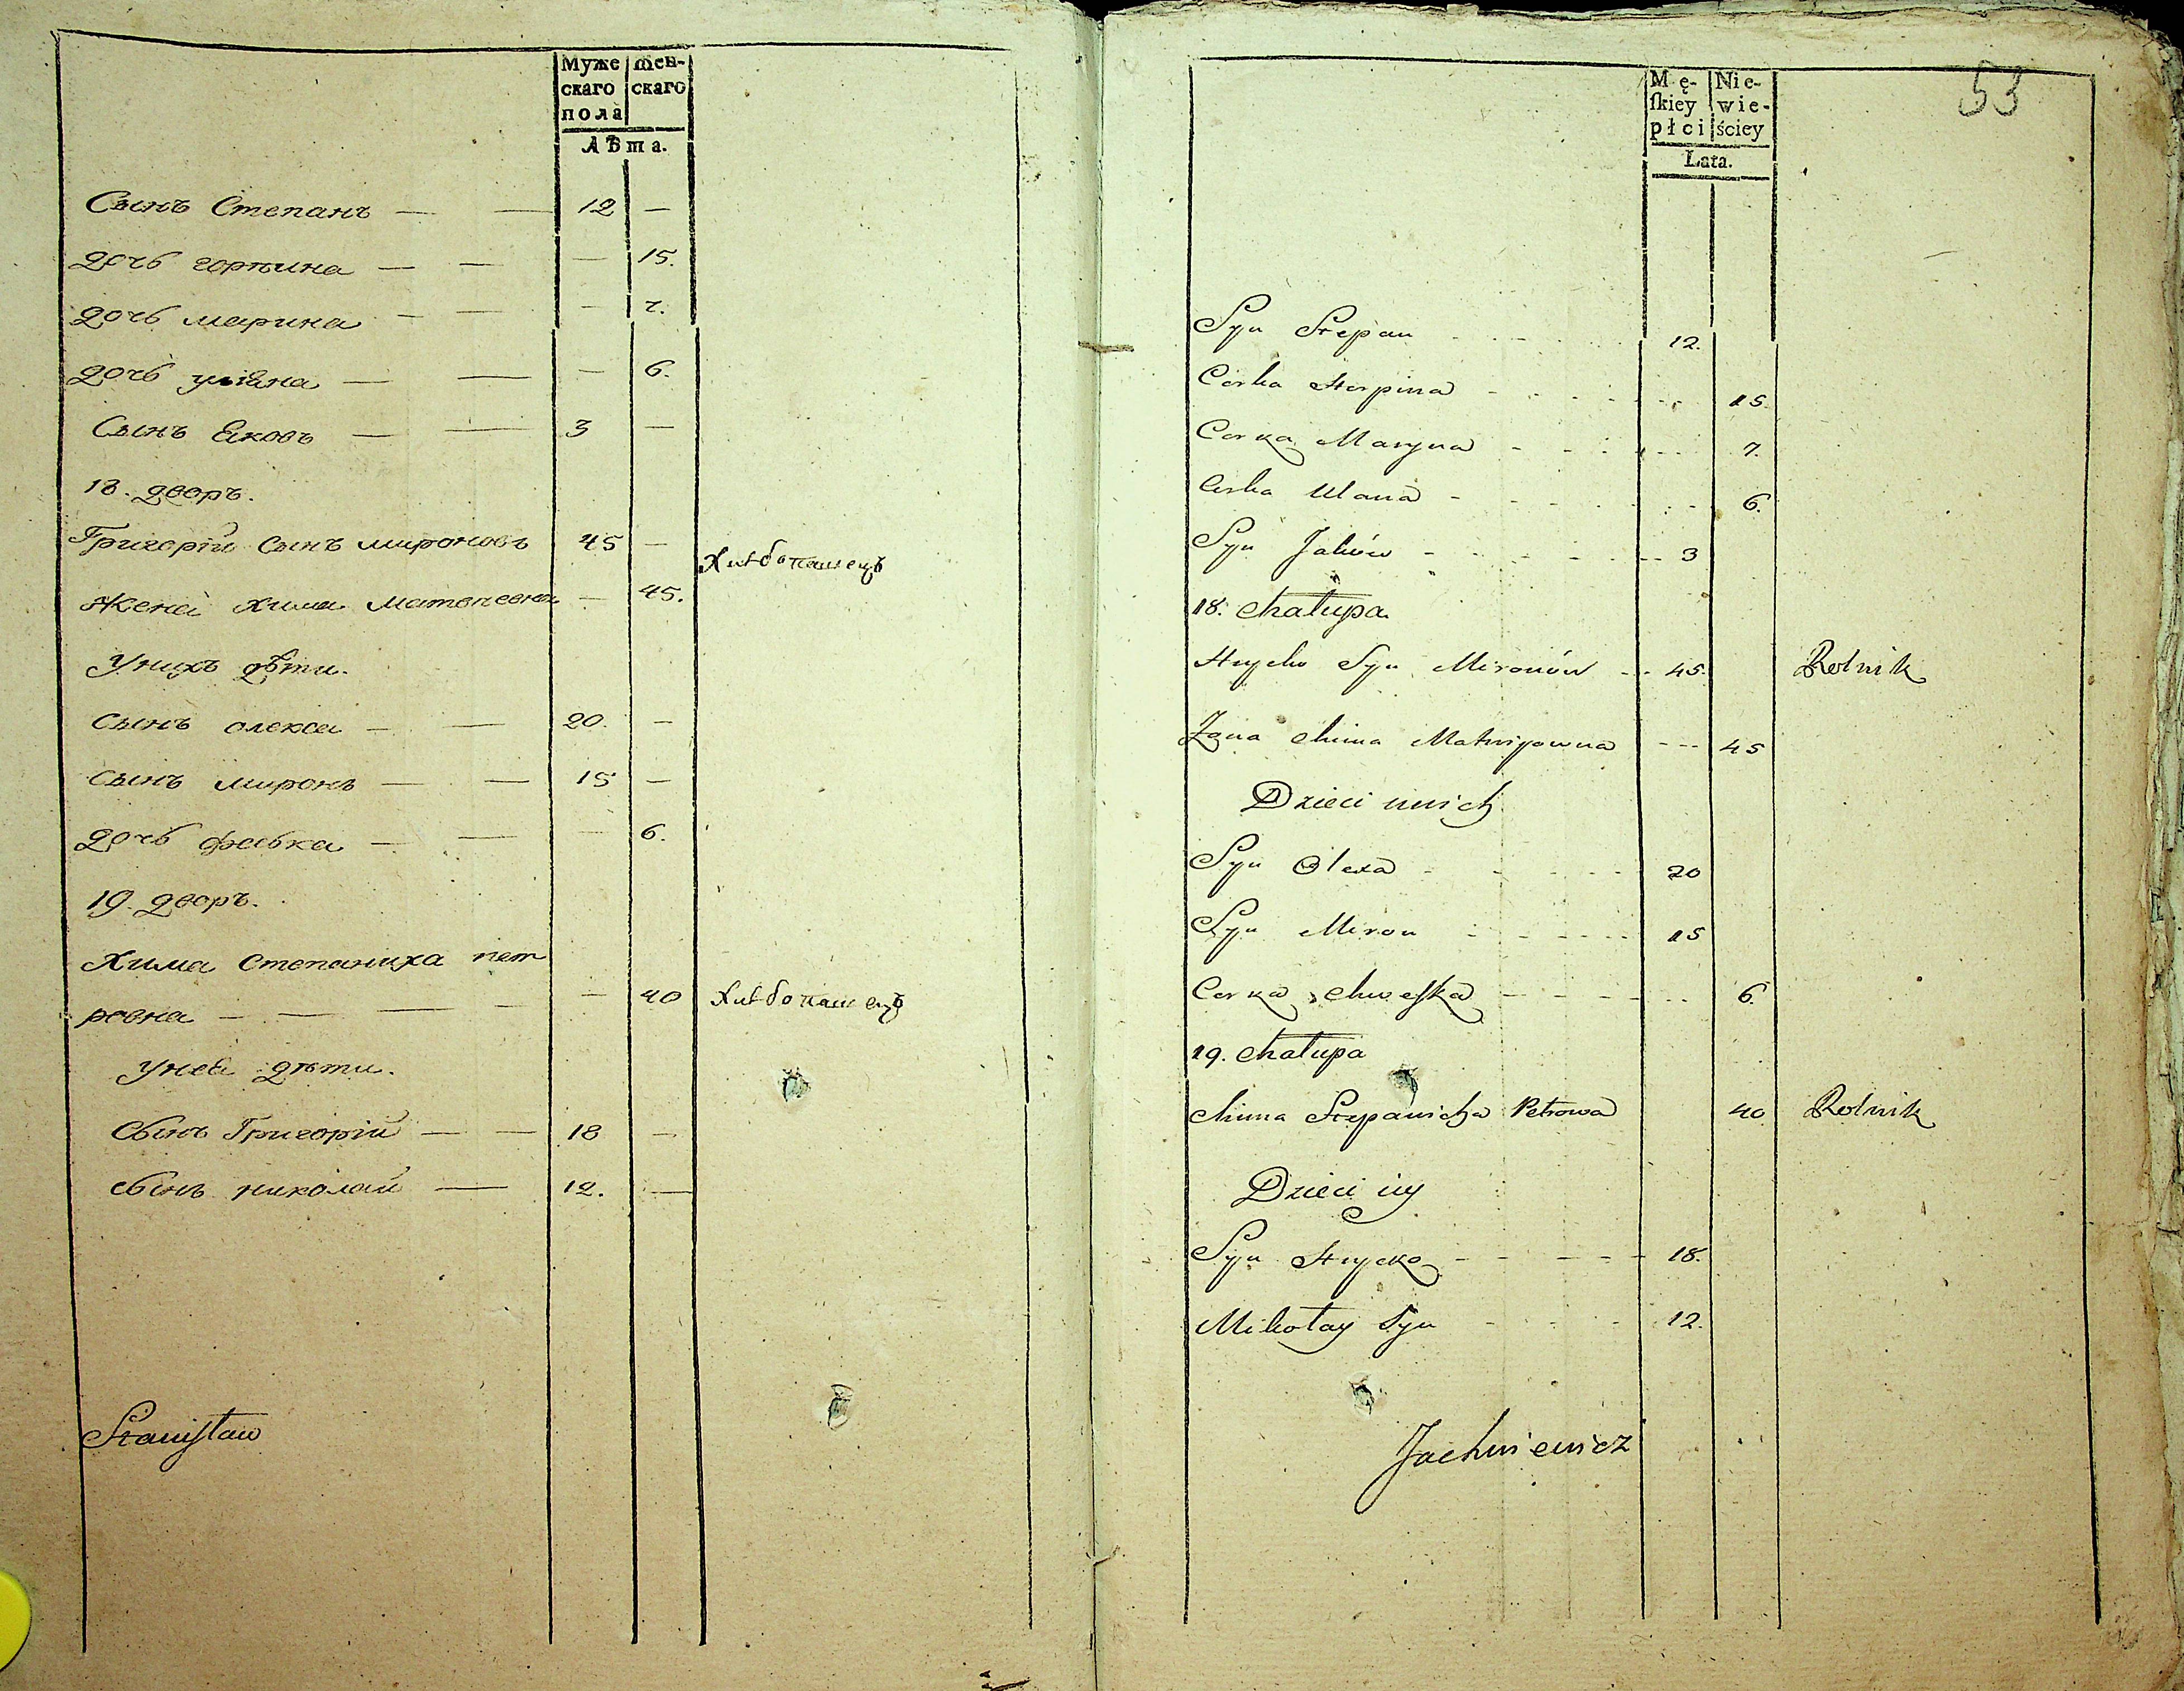 Муже
скаго
пола
Жен-
скаго
Лѣта.
Сынъ Степанъ — — 12 —
дочь горпина — — — 15.
дочь марина — — — 7.
дочь уліана — — — 6.
Сынъ Яковъ — — 3 —
18. дворъ.
Григорій Сынъ мироновъ 45 — Хлѣбопашецъ
Жена хима матвѣевна — 45.
Унихъ дѣти.
Сынъ олекса — — 20. —
Сынъ миронъ — — 15 —
дочь февка — — — 6.
19. дворъ.
Хима Степаниха пет
ровна — — — — 40 Хлѣбопашецъ
Уней дѣти.
Сынъ Григорій — — 18 —
Сынъ николай — 12. —
Stanisław
53
Mę-
ſkiey
płci
Nie-
wie-
ściey
Lata.
Syn Stepan 12.
Corka Horpina 15.
Corka Maryna 7.
Corka Ulana 6.
Syn Jaków 3
18. Chałupa
Hryćko Syn Mironów 45. Rolnik
Żona Chima Matwijowna 45
Dzieci unich
Syn Olexa 20
Syn Miron 15
Corka Chweſka 6.
19. Chałupa
Chima Stepanicha Petrowa 40. Rolnik
Dzieci iey
Syn Hrycko 18.
Mikołay Syn 12.
Jachniewicz